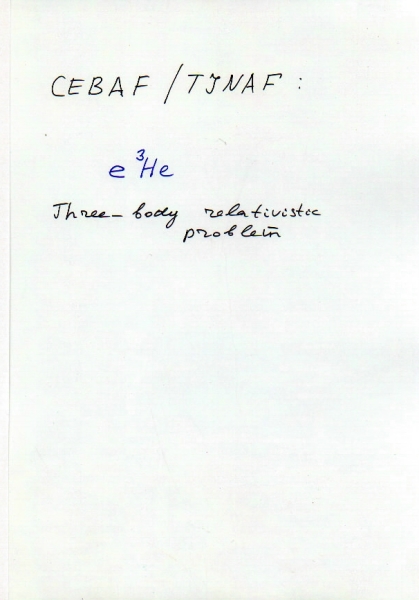 CEBAF / TJNAF :
e ³He
Three-body relativistic
problem